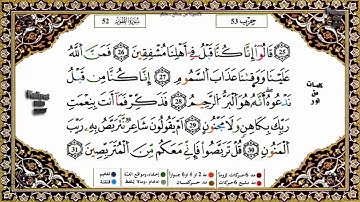 52 سورة الطور حزب 53
25 قَالُوٓا۟ إِنَّا كُنَّا قَبْلُ فِىٓ أَهْلِنَا مُشْفِقِينَ 26 فَمَنَّ ٱللَّهُ
عَلَيْنَا وَوَقَىٰنَا عَذَابَ ٱلسَّمُومِ 27 إِنَّا كُنَّا مِن قَبْلُ
نَدْعُوهُ أَنَّهُۥ هُوَ ٱلْبَرُّ ٱلرَّحِيمُ 28 فَذَكِّرْ فَمَآ أَنتَ بِنِعْمَتِ
رَبِّكَ بِكَاهِنٍ وَلَا مَجْنُونٍ 29 أَمْ يَقُولُونَ شَاعِرٌ نَّتَرَبَّصُ بِهِۦ رَيْبَ
ٱلْمَنُونِ 30 قُلْ تَرَبَّصُوا۟ فَإِنِّى مَعَكُم مِّنَ ٱلْمُتَرَبِّصِينَ 31